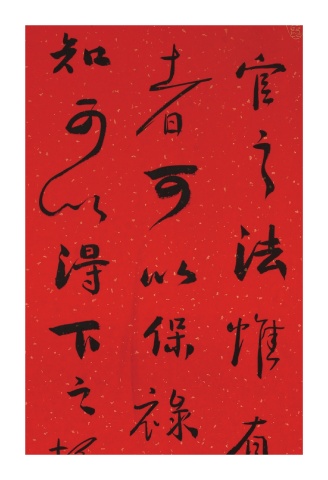 官之法惟有
者可以保祿
知可以得下之